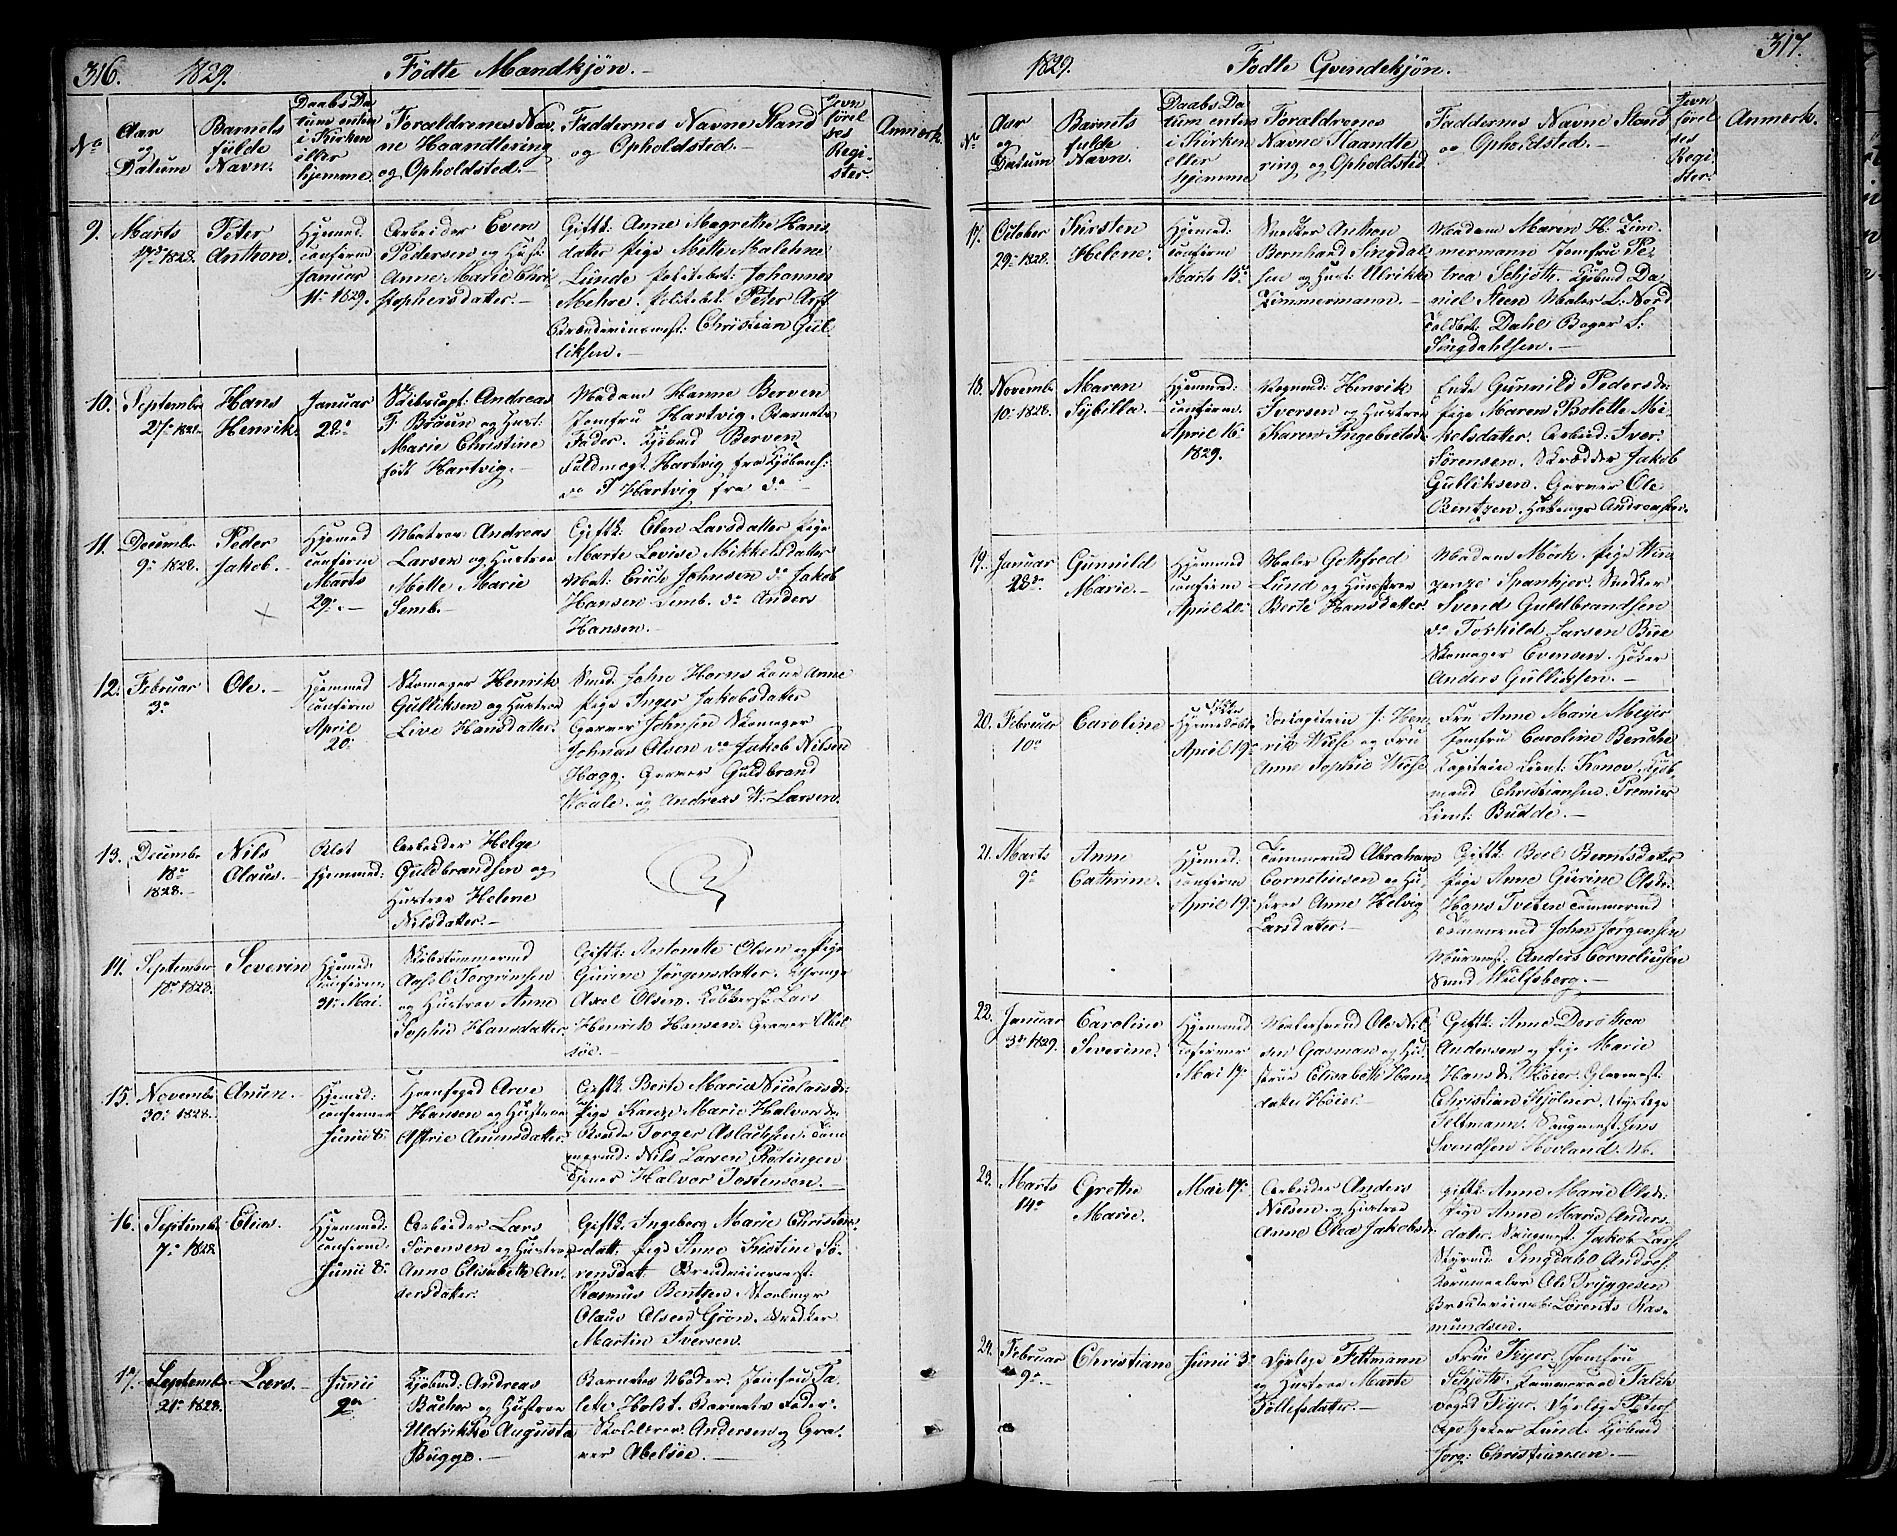 316. 1829. Födte Mandkjön.
No
Aar
og
Datum
Barnets
fulde
Navn.
Daabs Da
tum enten
i Kirken
eller
hjemme
Foraldrenes Nav
ne Haandtering
og Opholdsted.
Faddernes Navne Stand
og Opholdsted.
Jevn
förel
ses
Regi
ster.
Anmerk.
9. Marts
17de 1828.
Peter
Anthon.
Hjemmed:
confirm
Januar
11. 1829.
Arbeider Even
Pedersen og Hust:
Anne Marie Chri
stophersdatter.
Giftk: Anne Magrethe Hans
datter Pige Mette Malehne
Lunde
Johannes
Mehre.
Peter
Christian Gul
liksen.
10. Septembr
27. 1828.
Hans
Henrik.
Januar
28.
Andreas
F. Bröun og Hust:
Marie Christine
född Hartvig.
Madam Hanne Berven
Jomfru Hartvig. Barnets
Fader. Kjöbmd Berven
Fuldmegt. Hartvig fra Kjöbenh:
do P Hartvig fra do
11. Decembr
9. 1828.
Peder
Jakob.
Hjemmed
confirm
Marts
29.
Matros Andreas
Larsen og Hustroe
Mette Marie
Semb.
Giftk. Elen Larsdatter Pige
Marte Lovise Mikkelsdatter
Mat: Erich Johnsen do Jakob
Hansen Semb. do Anders
Hansen.
12. Februar
3.
Ole.
Hjemmed
confirm
April
20.
Skomager Henrik
Gulliksen og Hustroe
Live Hansdatter.
Smed John Horns Kone Anne
Pige Inger Jakobsdatter
Garver Johnsen Skomager
Johnas Olsen do Jakob Nilsen
Hagg. Garver Guldbrand
Kaale. og Andreas W. Larsen.
13. Decembr
18.
1828.
Nils
Olaus.
Blot
hjemmed:
Arbeider Helge
Guldbrandsen og
Hustroe Helene
Nilsdatter.
14. September
18. 1828.
Severin
Hjemmed:
confirm
31. Mai.
Skibstömmermd
Torgrimsen
og Hustroe Anne
Sophie Hansdatter.
Giftk: Antonette Olsen og Pige
Gurine Jörgensdatter.
Axel Olsen. Kobbersl. Lars
Henrik Hansen. Graver Abel
söe.
15. Novembr
30. 1828.
Anun.
Hjemmed:
confirmer
Junii 8.
Arne
Hansen og Hustroe
Astrie Anunsdatter.
Giftk. Berte Marie Nicolaisdr:
Pige Karen Marie Halvorsdr
Torger Aslachsen. Töm
mermd: Nils Larsen Rödningen
Tjener Halvor Tostensen.
16. Septembr
7. 1828
Elias.
Hjemmed:
confirm:
Junii 8.
Arbeider Lars
Sörensen og Hustroe
Anne Elisabeth An
dersdatter.
Giftk. Ingeborg Marie Christen
datt. Pige Anne Kristine Sö
rensdat.
Rasmus Bentzen
Olaus Olsen Grön. Snedker
Martin Iversen.
17. Septembr
21. 1828.
Lars.
Junii
2den
Kjöbmd: Andreas
Bucher og Hustroe
Uldrikke Augusta
Bugge.
Barnets Moder. Jomfru Ja
Holst. Barnets Fader.
Skolelærer Andersen og Gra
ver Abelsöe.
1829. Födte Qvindekjön. 317.
No
Aar
og
Datum
Barnets
fulde
Navn.
Daabs Da
tum enten
i Kirken
eller
hjemme
Foraldrenes
Navne Haandte
ring og Opholdsted
Faddernes Navne Stand
og Opholdsted.
Jevn
förel
ses
Regi
ster.
Anmerk.
17. October
29. 1828.
Kirsten
Helene.
Hjemmed:
confirm
Marts 15.
Snedker Anthon
Bernhard Singdal
sen og Hust: Ulrikke
Zimmermann.
Madam Maren H. Zim
mermann Jomfru Pe
trea Schjött. Kjöbmd Da
niel Steen Maler L. Nord
Dahl Bager L:
Singdahlsen.
18. Novembr
10. 1828.
Maren
Sybilla.
Hjemmed:
confirm.
April 16.
1829.
Vognmd: Henrik
Iversen og Hustroe
Karen Ingebretsdr
Enke Gunnild Pedersdr
Pige Maren Bolette Mi
kelsdatter. Arbeid: Iver
Sörensen. Skrædder Jakob
Gulliksen. Garver Ole
Bentzen.
19. Januar
28de
Gunnild
Marie.
Hjemmed
confirm
April 20.
Maler Gottfred
Lund og Hustroe
Berte Hansdatter.
Madam Mörk. Pige Vin
zenze Spanhjer. Snedker
Svend Guldbrandsen
do Torkild Larsen Bue
Skomager Evensen. Höker
Anders Gulliksen.
20. Februar
10.
Caroline
Hjemmedöbt
April 19.
J: Hen
rik Wiese og Fru
Anne Sophie Wiese
Fru Anne Marie Meyer
Jomfru Caroline
Kapitain Lieut: Konov. Kjöb
mand Christiansen. Premier
Lieut: Budde.
21. Marts
9.
Anne
Cathrine.
Hjemmed:
confirm
April 19.
Tömmermd Abraham
Corneliusen og Hu
stroe Anne Helvig
Larsdatter.
Giftk: Boel Berntsdatter
Pige Anne Gurine Olsdr.
Hans Tveten Tömmermd
Tömmermd Johan Jörgensen
Anders Corneliusen
Smed Wulfsberg.
22. Januar
3. 1829.
Caroline
Severine.
Hjemmed
confirmer
Mai 17.
Ole Nil
sen Gasman og Hu
stroe Elisabeth Hans
datter Höier.
Giftk: Anne Dorothea
Andersen og Pige Marie
Hansdr Höier. Glarmest:
Christian Kjölner. Dyrlæge
Feltmann. Saugmest: Jens
Svendsen Hovland.
23. Marts
14.
Grethe
Marie.
Mai 17.
Arbeider Anders
Nilsen og Hustroe
Anne Olea Jakobsdr
giftk: Anne Marie Olsdr.
Pige Anne Marie Anders
datter. Saugmest: Jakob Lars
Styrmd Singdahl Andres
Ole Tryggesen
Lorents Ras
mundsen.
24. Februar
9.
Christiane
Junii 3.
Dyrlæge Feltmann
og Hustroe Marte
Tollefsdatter.
Fru Feyer. Jomfru
Schjött.
Feyer. Dyrlæge Peters
Apotheker Lund. Kjöbmd
Jörg: Christiansen.